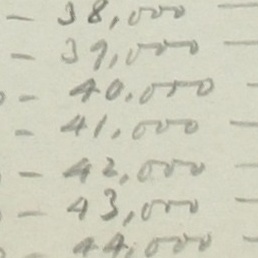 - 38,000 -
- 39,000 -
- 40,000 -
- 41,000 -
- 42,000 -
- 43,000 -
- 44,000 -